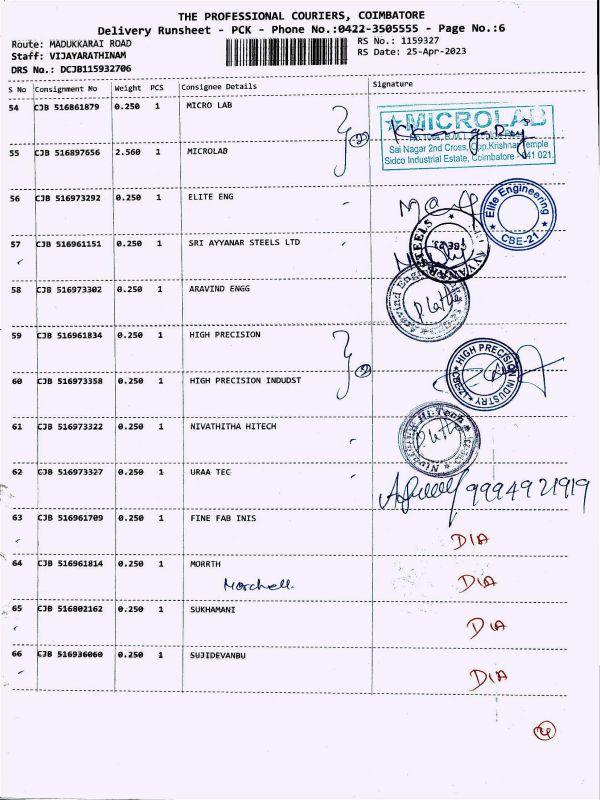 THE PROFESSIONAL COURIERS, COIMBATORE
Delivery Runsheet - PCK - Phone No.:0422-3505555 - Page No.:6
Route: MADUKKARAI ROAD
RS No.: 1159327
Staff: VIJAYARATHINAM
RS Date: 25-Apr-2023
DRS No.: DCJB115932706
S No Consignment No Weight PCS Consignee Details Signature
54 CJB 516861879 0.250 1 MICRO LAB
2
MICROLAB
Sai Nagar 2nd Cross, Opp.Krishnan Temple
Sidco Industrial Estate, Coimbatore - 641 021.
55 CJB 516897656 2.560 1 MICROLAB
56 CJB 516973292 0.250 1 ELITE ENG
Elite Engineering
CBE-21
57 CJB 516961151 0.250 1 SRI AYYANAR STEELS LTD
58 CJB 516973302 0.250 1 ARAVIND ENGG
59 CJB 516961834 0.250 1 HIGH PRECISION
2
HIGH PRECISION INDUSTRY
60 CJB 516973358 0.250 1 HIGH PRECISION INDUDST
61 CJB 516973322 0.250 1 NIVATHITHA HITECH
62 CJB 516973327 0.250 1 URAA TEC
9994921919
63 CJB 516961709 0.250 1 FINE FAB INIS
DIA
64 CJB 516961814 0.250 1 MORRTH
DIA
65 CJB 516802162 0.250 1 SUKHAMANI
DIA
66 CJB 516936060 0.250 1 SUJIDEVANBU
DIA